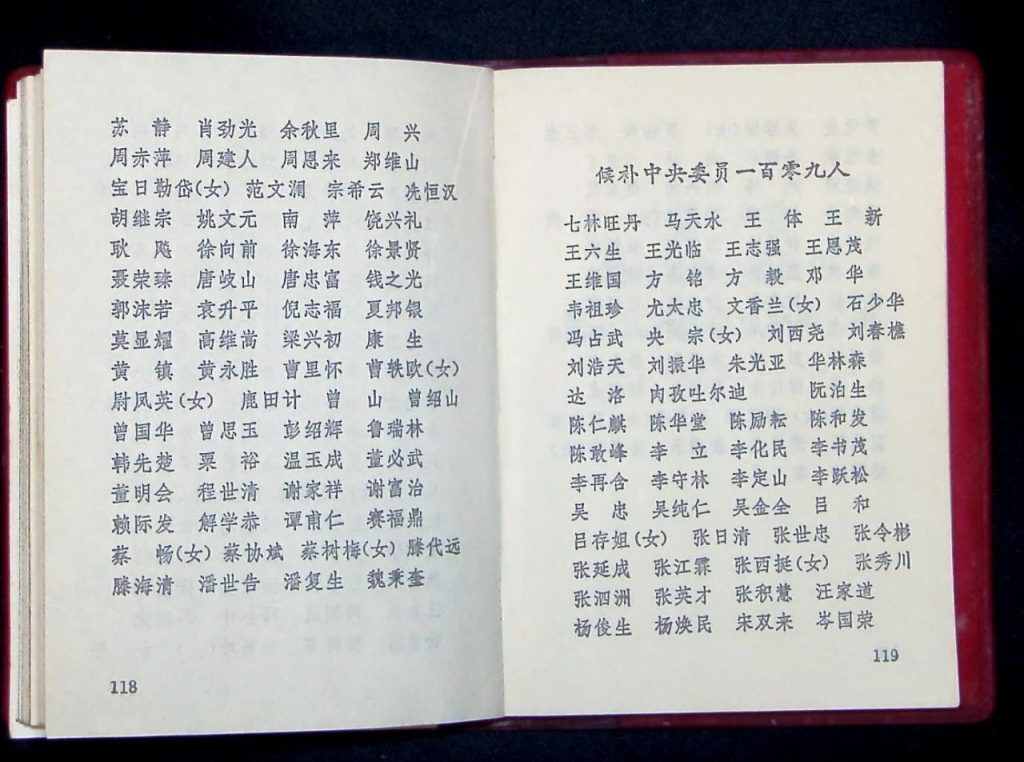 苏　静　肖劲光　余秋里　周　兴
周赤萍　周建人　周恩来　郑维山
宝日勒岱(女)　范文澜　宗希云　冼恒汉
胡继宗　姚文元　南　萍　饶兴礼
耿　飚　徐向前　徐海东　徐景贤
聂荣臻　唐岐山　唐忠富　钱之光
郭沫若　袁升平　倪志福　夏邦银
莫显耀　高维嵩　梁兴初　康　生
黄　镇　黄永胜　曹里怀　曹轶欧(女)
尉凤英(女)　鹿田计　曾　山　曾绍山
曾国华　曾思玉　彭绍辉　鲁瑞林
韩先楚　粟　裕　温玉成　董必武
董明会　程世清　谢家祥　谢富治
赖际发　解学恭　谭甫仁　赛福鼎
蔡　畅(女)　蔡协斌　蔡树梅(女)　滕代远
滕海清　潘世告　潘复生　魏秉奎
118
候补中央委员一百零九人
七林旺丹　马天水　王　体　王　新
王六生　王光临　王志强　王恩茂
王维国　方　铭　方　毅　邓　华
韦祖珍　尤太忠　文香兰(女)　石少华
冯占武　央　宗(女)　刘西尧　刘春樵
刘浩天　刘振华　朱光亚　华林森
达　洛　肉孜吐尔迪　阮泊生
陈仁麒　陈华堂　陈励耘　陈和发
陈敢峰　李　立　李化民　李书茂
李再含　李守林　李定山　李跃松
吴　忠　吴纯仁　吴金全　吕　和
吕存姐(女)　张日清　张世忠　张令彬
张延成　张江霖　张西挺(女)　张秀川
张泗洲　张英才　张积慧　汪家道
杨俊生　杨焕民　宋双来　岑国荣
119